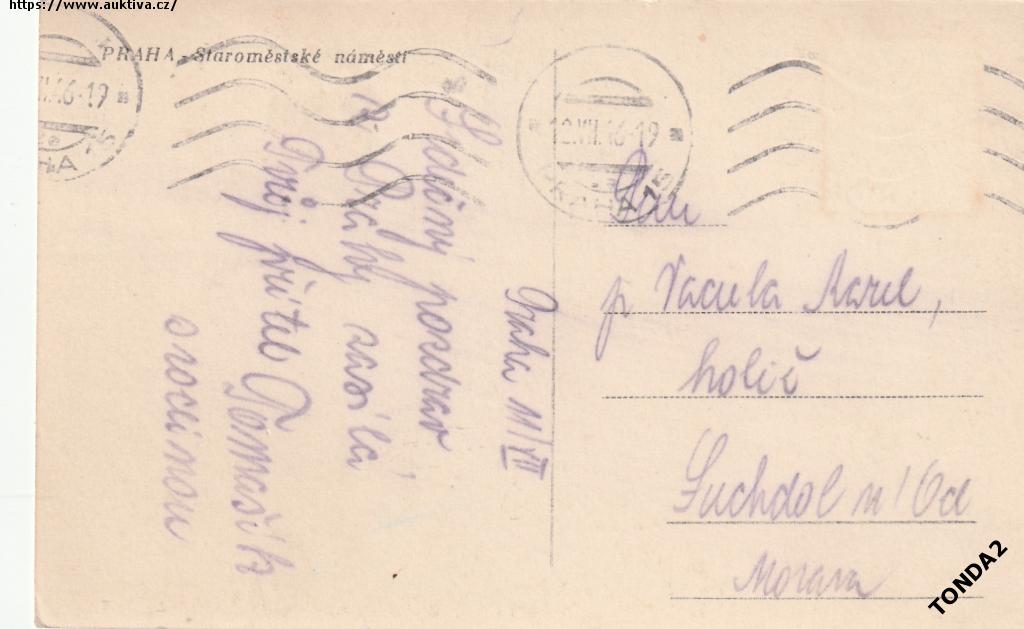 https://www.auktiva.cz/
PRAHA - Staroměstské náměstí
12.VII.46-19
PRAHA 15
Praha 11/VII
Srdečný pozdrav
z Prahy zasílá
Tvůj přítel Tomašík
s rodinou
Pan
p Vacula Karel,
holič
Suchdol n/Od
Morava
TONDA2